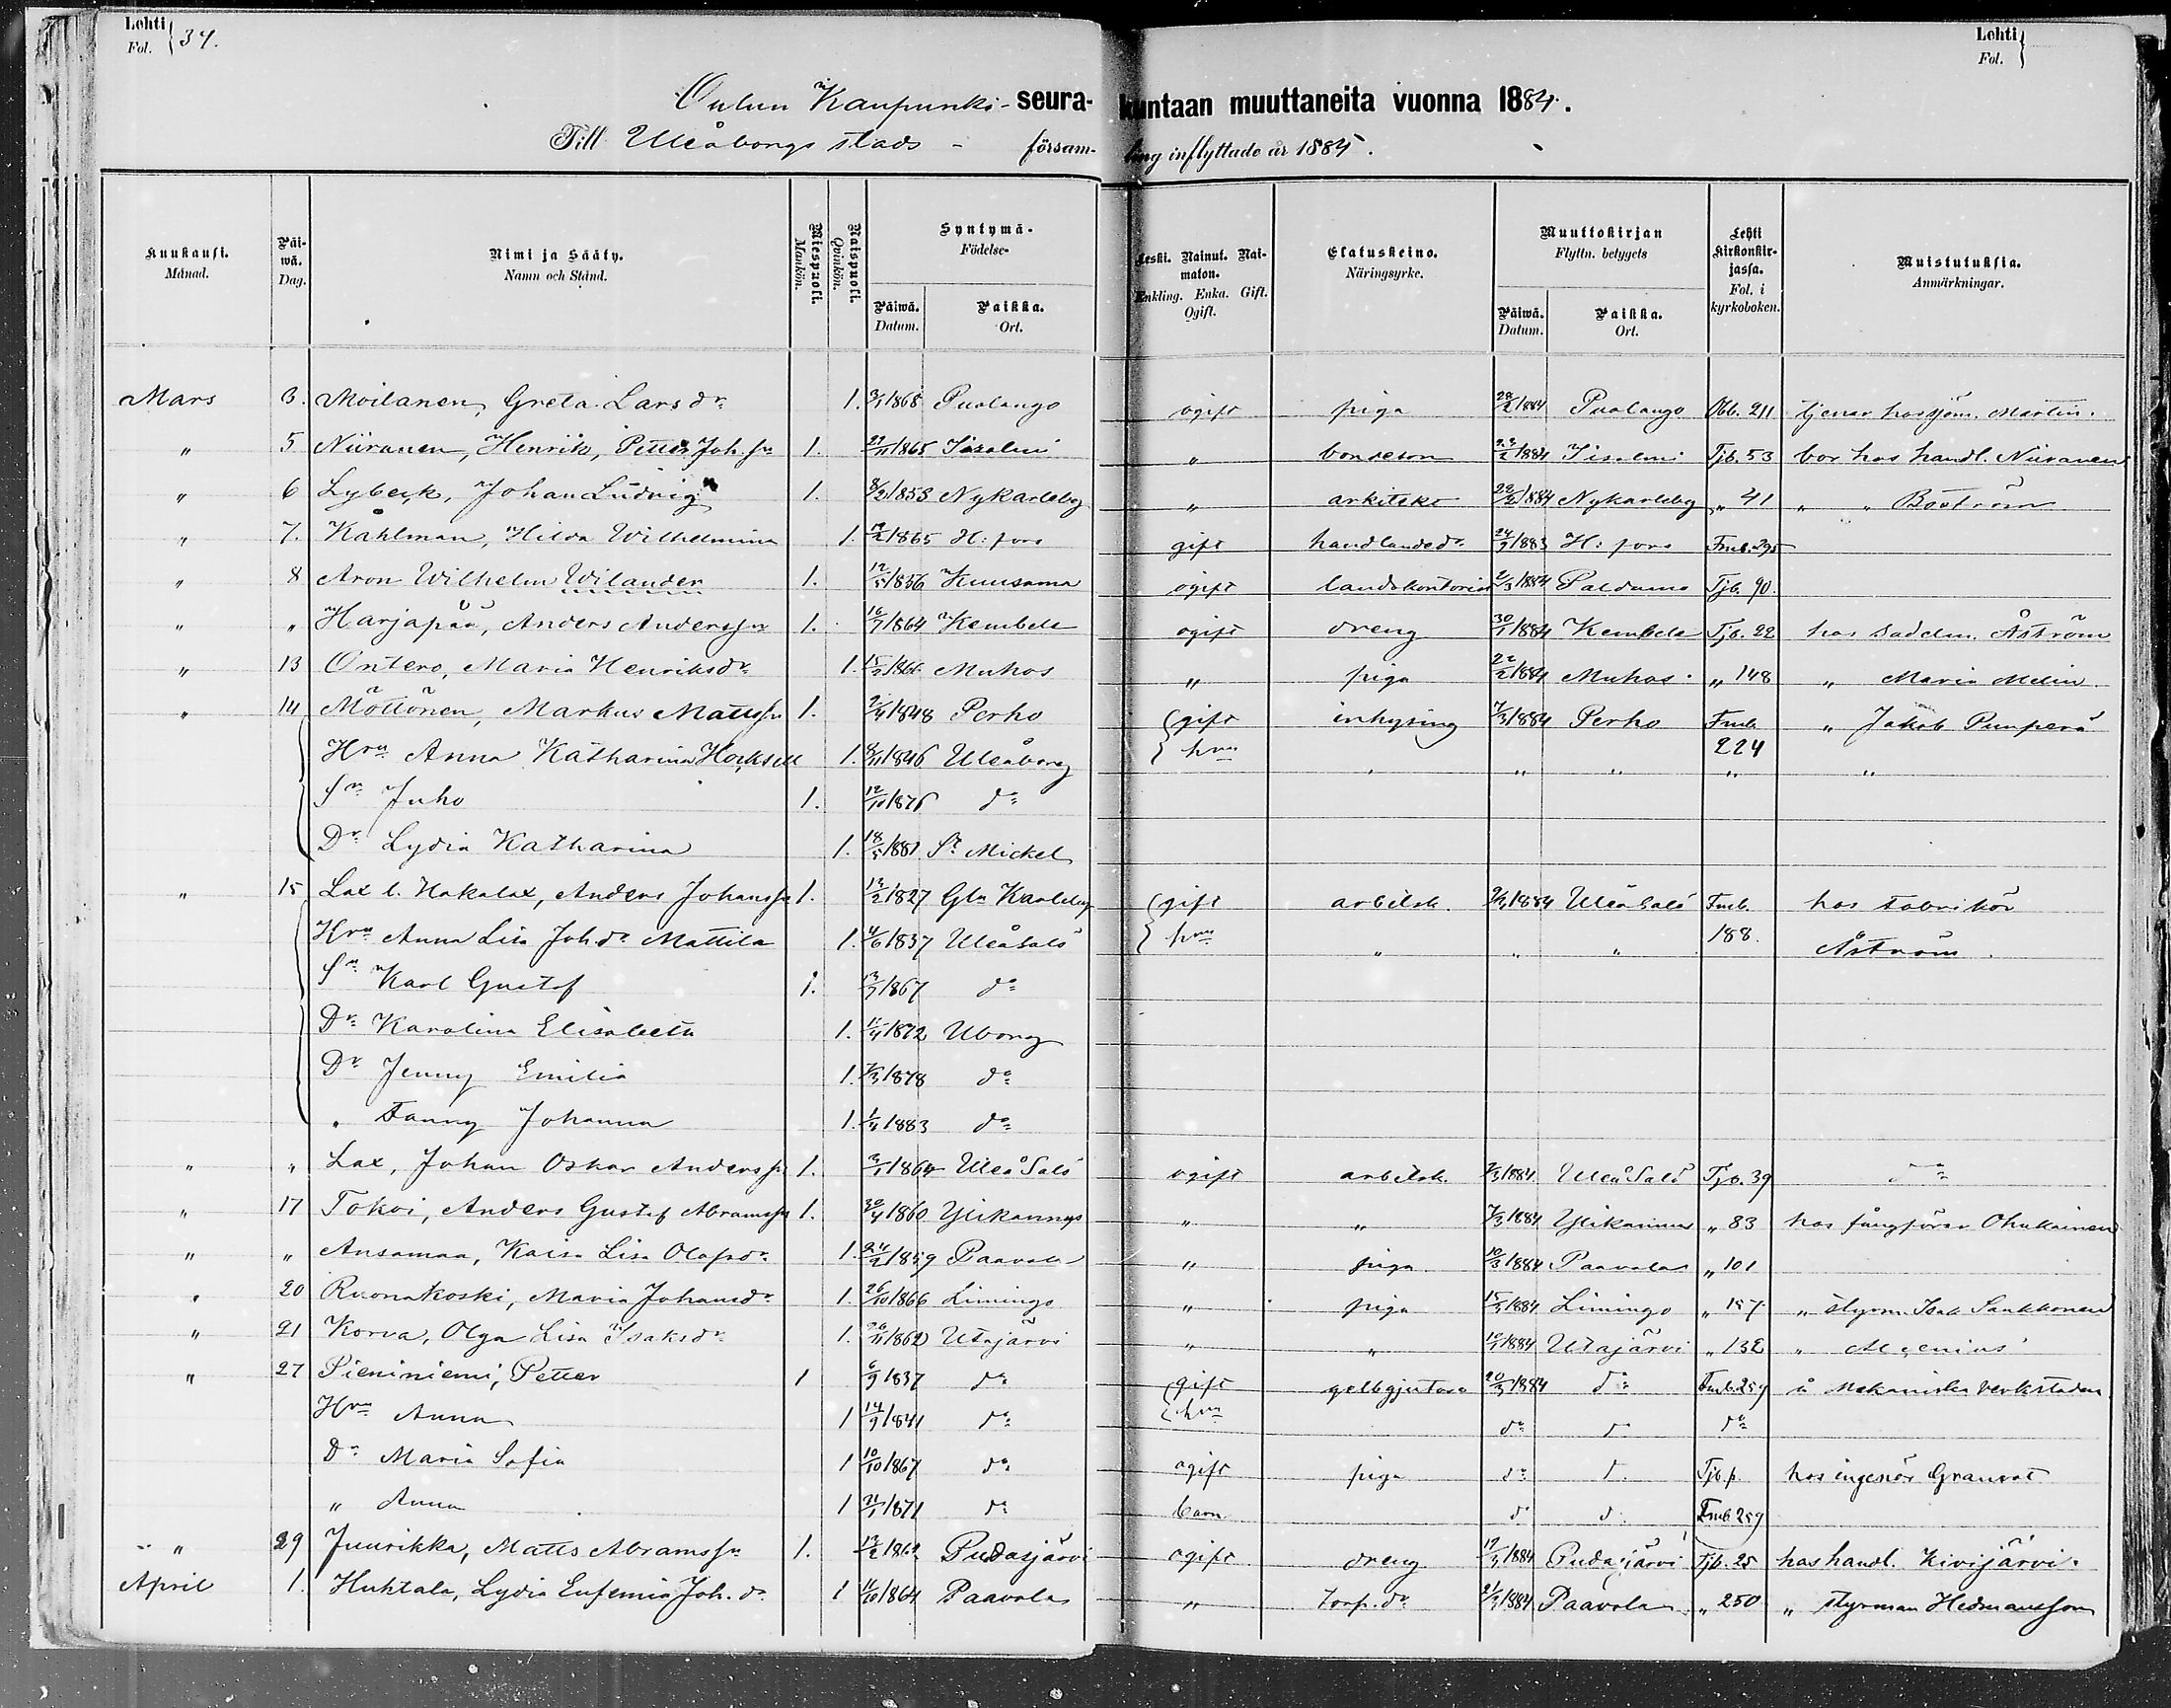 Lehti Fol. 34. Lehti Fol.
Oulun Kaupunki - seurakuntaan muuttaneita vuonna 1884.
Till Uleåborgs stads - församling inflyttade år 1884.
Kuukausi. Månad. Päiwä. Dag. Nimi ja Sääty. Namn och Stånd. Miespuoli. Mankön. Naispuoli. Qvinkön. Syntymä- Födelse- Päiwä. Datum. Paikka. Ort. Leski. Nainut. Naimaton. Enkling. Enka. Gift. Ogift. Elatuskeino. Näringsyrke. Muuttokirjan Flyttn. betygets Päiwä. Datum. Paikka. Ort. Lehti kirkonkirjassa. Fol. i kyrkoboken. Muistutuksia. Anmärkningar.
Mars 3. Moilanen, Greta Larsdr 1. 3/1 1868 Puolango ogift piga 1884 Puolango 211 tjenar hos sjöm. Martin.
" 5 Niiranen, Henrik, Petter Joh.sn 1. 1865 Iisalmi " bondeson 1884 Iisalmi Tjb. 53 bor hos handl. Niiranen
" 6 Lybeck, Johan Ludvig 1. 8/2 1853 Nykarleby " arkitekt 1884 Nykarleby " 41 " " Boström
" 7. Kahlman, Hilda Wilhelmina 1. 1865 H:fors gift handlandedr 1883 H:fors Fmb. 295
" 8 Aron Wilhelm Wilander 1. 12/5 1856 Kuusamo ogift landskontorist 1884 Paldamo Tjb. 90.
" " Harjapää, Anders Andersson 1. 16/7 1864 Kembele ogift dreng 30/1 1884 Kembele Tjb. 22 hos sadelm. Åström
" 13 Ontero, Maria Henriksdr 1. 15/2 1866 Muhos " piga 22/2 1884 Muhos " 148 " Maria Melin
" 14 Möttönen, Markus Mattssn 1. 2/4 1848 Perho gift inhysing 7/3 1884 Perho Fmb. " Jakob Pumperä
Hru Anna Katharina 1. 8/11 1846 Uleåborg hru " " " 224 "
Sn Juho 1. 12/10 1876 do
Dr Lydia Katharina 1. 18/5 1881 St Mickel
" 15 Lax l. Hakalax, Anders Johanssn 1. 12/2 1827 Gla Karleby gift arbetsk. 1884 UleåSalo Fmb. hos fabrikör
Hru Anna Lisa Joh.dr Mattila 1. 4/6 1837 UleåSalo hru " " " 188. Åström
Sn Karl Gustaf 1. 13/7 1867 do
Dr Karolina Elisabeth 1. 1872 Uborg
Dr Jenny Emilia 1. 1878 do
" Fanny Johanna 1. 1/4 1883 do
" " Lax, Johan Oskar Anderssn 1. 3/1 1864 UleåSalo ogift arbetsk. 1884 UleåSalo Tjb. 39 do
" 17 Tokoi, Anders Gustaf Abramssn 1. 30/4 1860 Ylikannus " " 7/3 1884 Ylikannus " 83 hos fångförar Ohukainen
" " Ansamaa, Kaisa Lisa Olofsdr 1. 24/2 1859 Paavola " piga 10/3 1884 Paavola " 101
" 20 Ruonakoski, Maria Johansdr 1. 26/10 1866 Limingo " piga 1884 Limingo " 187 " styrm. Isak Sankkonen
" 21 Korva, Olga Lisa Isaksdr 1. 1862 Utajärvi " " 1884 Utajärvi " 132 "
" 27 Pieniniemi, Petter 1 6/9 1837 do gift gelbgjutare 20/3 1884 do Fmb. 259 å Mekaniska verkstaden
Hru Anna 1 14/9 1841 do hru do do do
Dr Maria Sofia 1 10/10 1867 do ogift piga do d. Tjb. p. hos ingeniör Granrot
" Anna 1 21/1 1871 do barn do d. Fmb 259
" 29 Juurikka, Matts Abramssn 1. 1862 Pudasjärvi ogift dreng 1884 Pudasjärvi Tjb. 25 hos handl. Kivijärvi.
April 1. Huhtala, Lydia Eufemia Joh.dr 1 1864 Paavola " Torp.dr 1884 Paavola " 250 " styrman Hedmansson